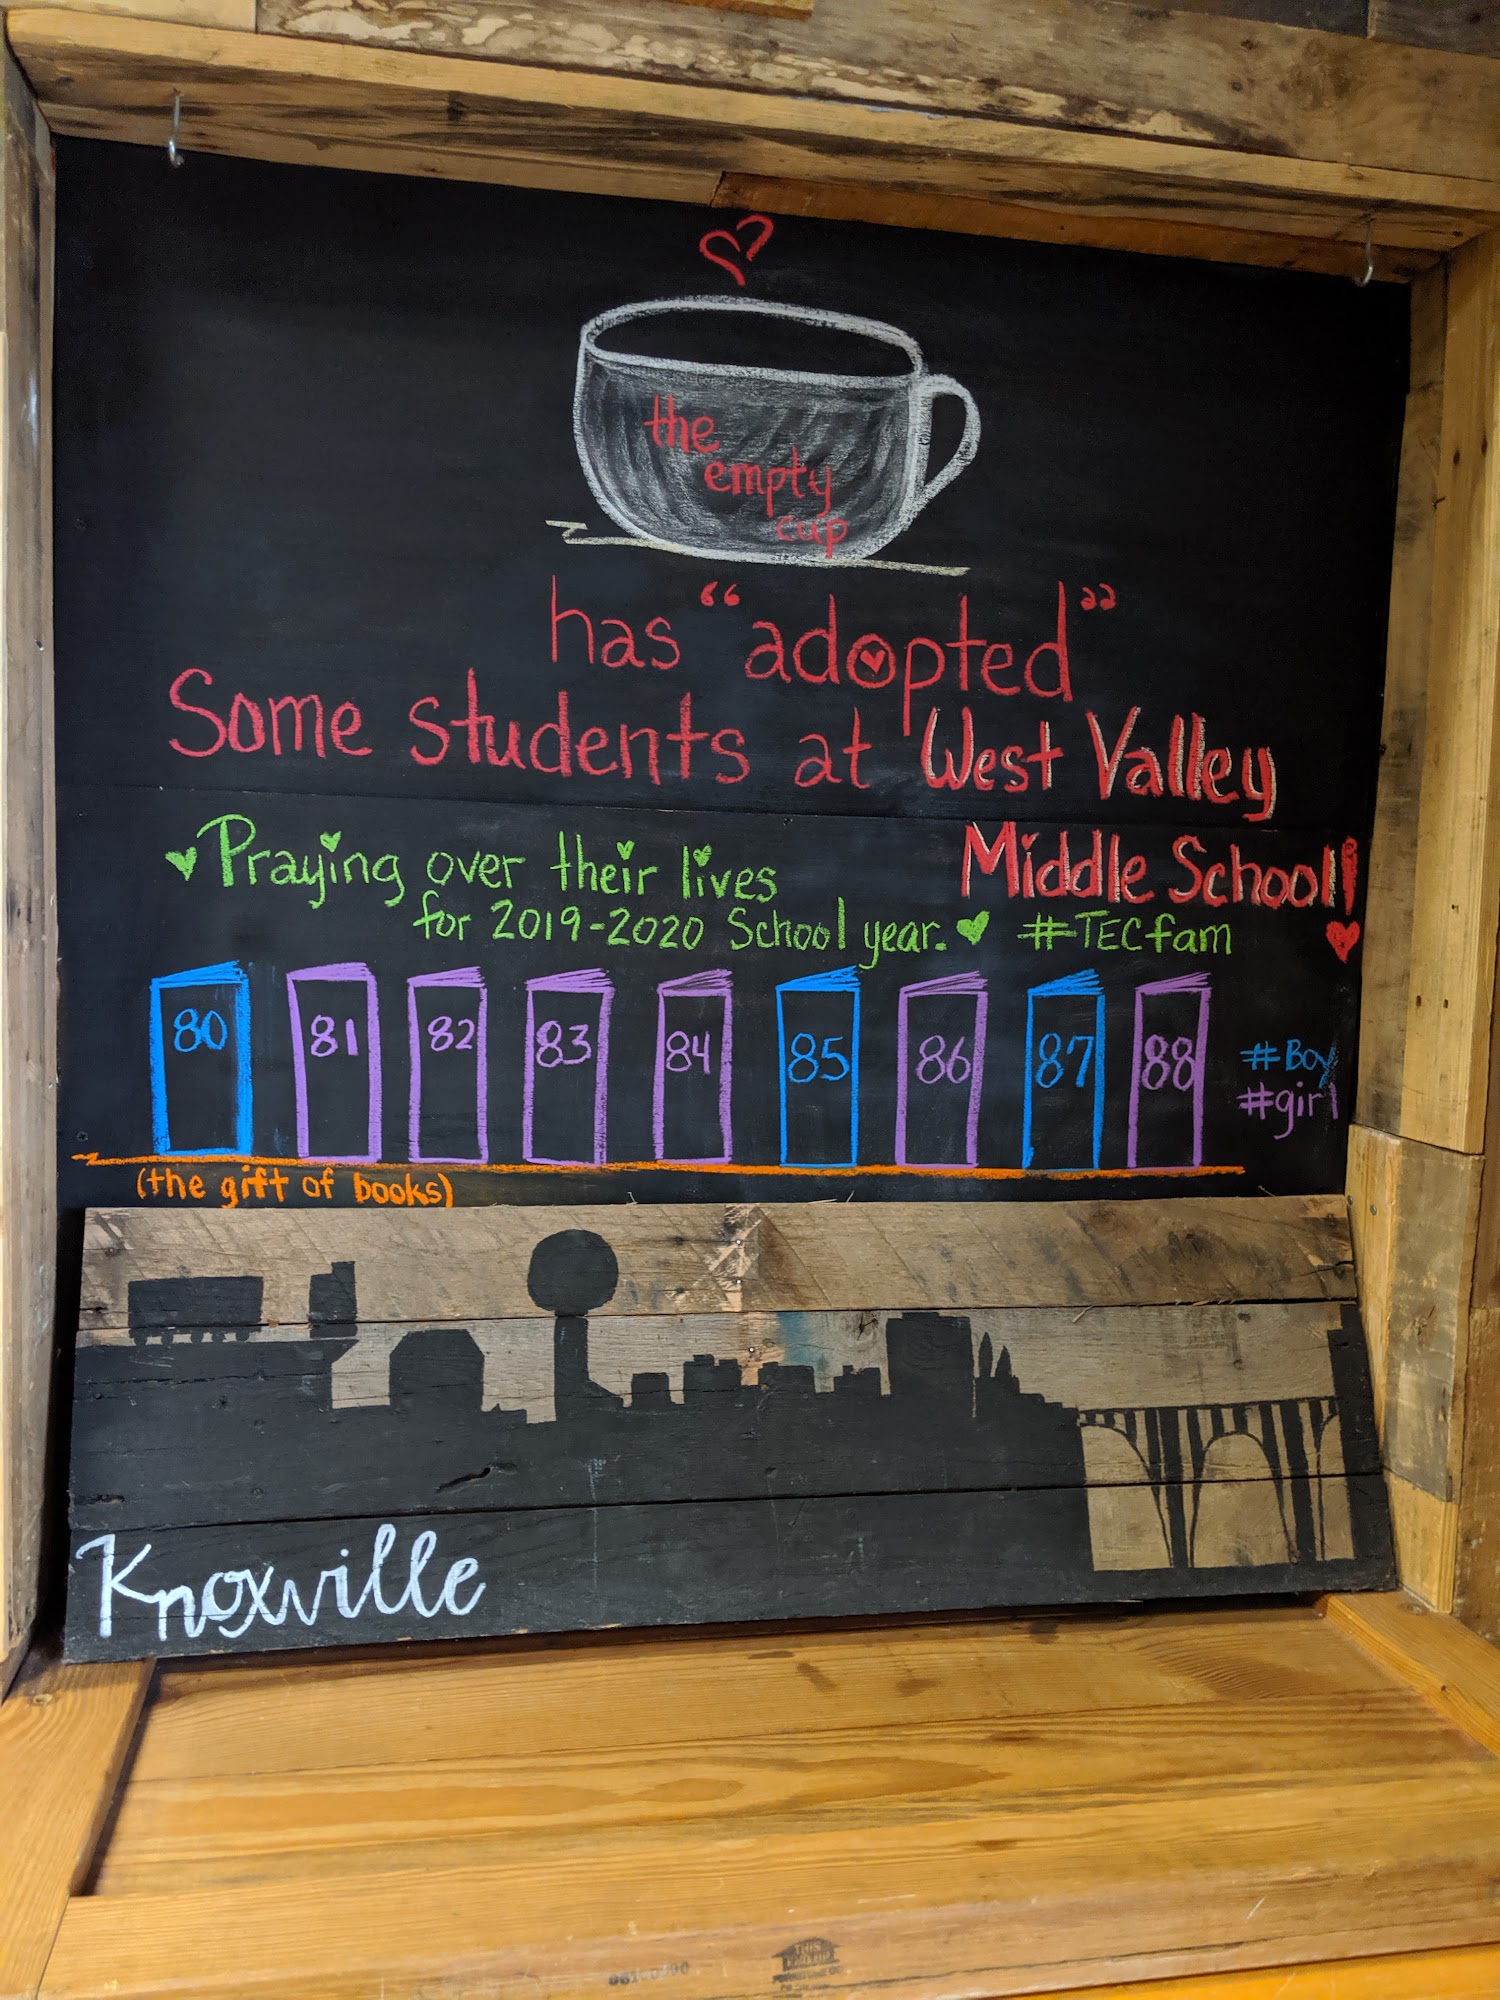 the
empty
cup
has “adopted”
Some students at West Valley
Middle School!
Praying over their lives
for 2019-2020 School year. #TECfam
80 81 82 83 84 85 86 87 88
#Boy
#girl
(the gift of books)
Knoxville